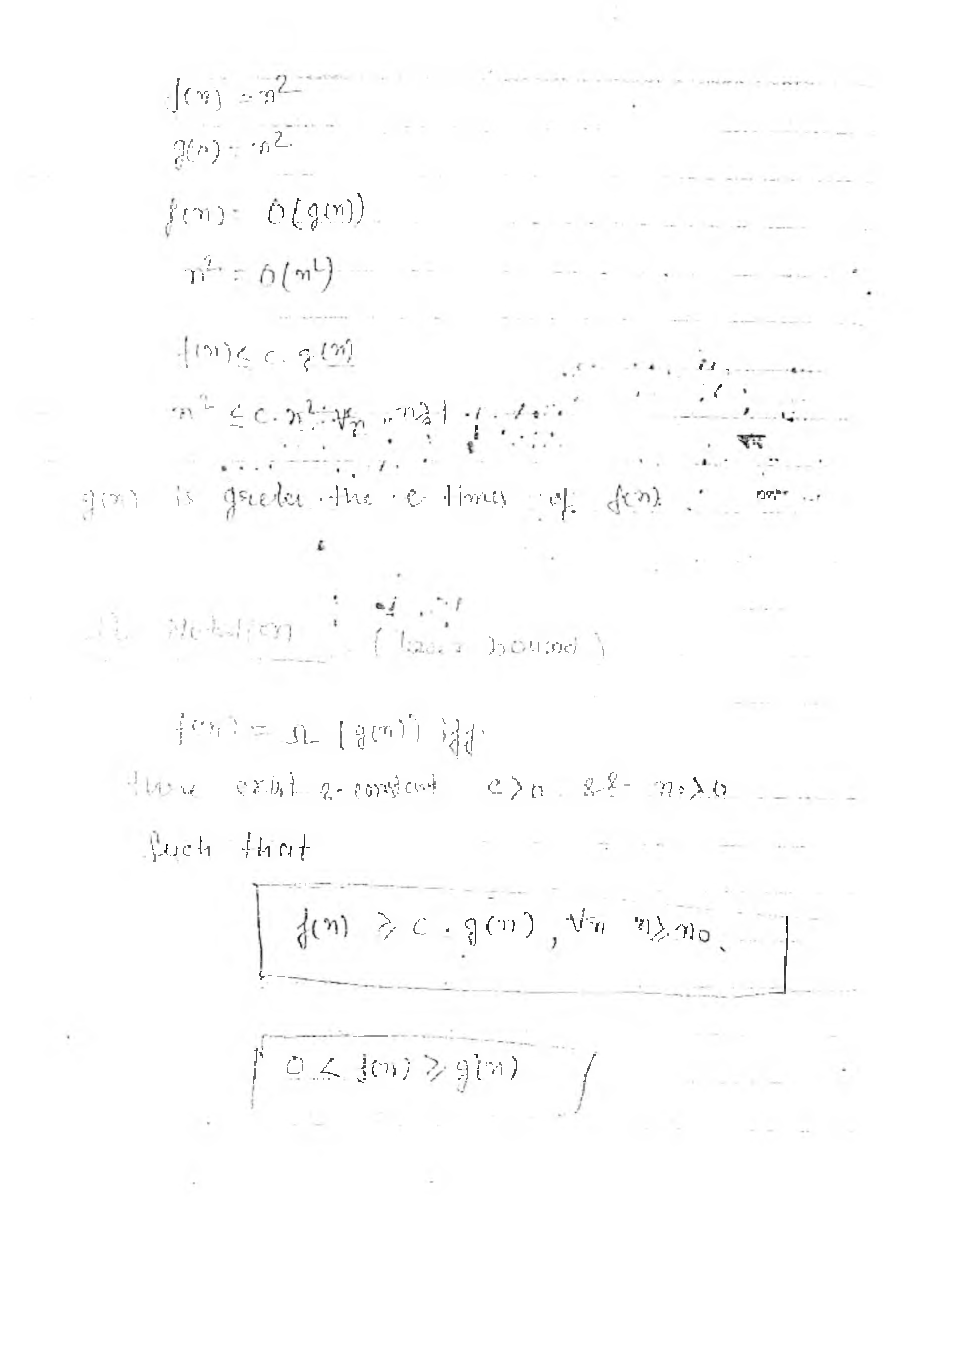 f(n) = n²
g(n) = n²
f(n) = O(g(n))
n² = O(n²)
f(n) ≤ c. g(n)
n² ≤ c. n² ∀n, n≥1
g(n) is greater the c times of f(n).
Notation (lower bound)
f(n) = Ω (g(n)) iff.
there exist a constant c>0 && n₀>0
Such that
f(n) ≥ c . g(n), ∀n n≥n₀.
0 ≤ f(n) ≥ g(n)